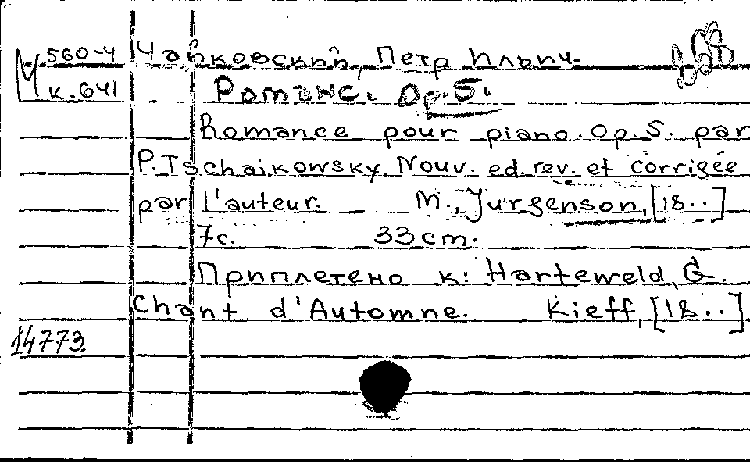 М 560-4 Чайковский, Петр Ильич.
к.641 Романс. Op.5.
Romance pour piano. Op.5. par
P. Tschaikowsky. Nouv. ed rev. et corrigée
par l'auteur. M., Jurgenson, [18..]
7с. 33cm.
Приплетено к: Harteweld, G.
Chant d'Automne. Kieff, [18..]
14773